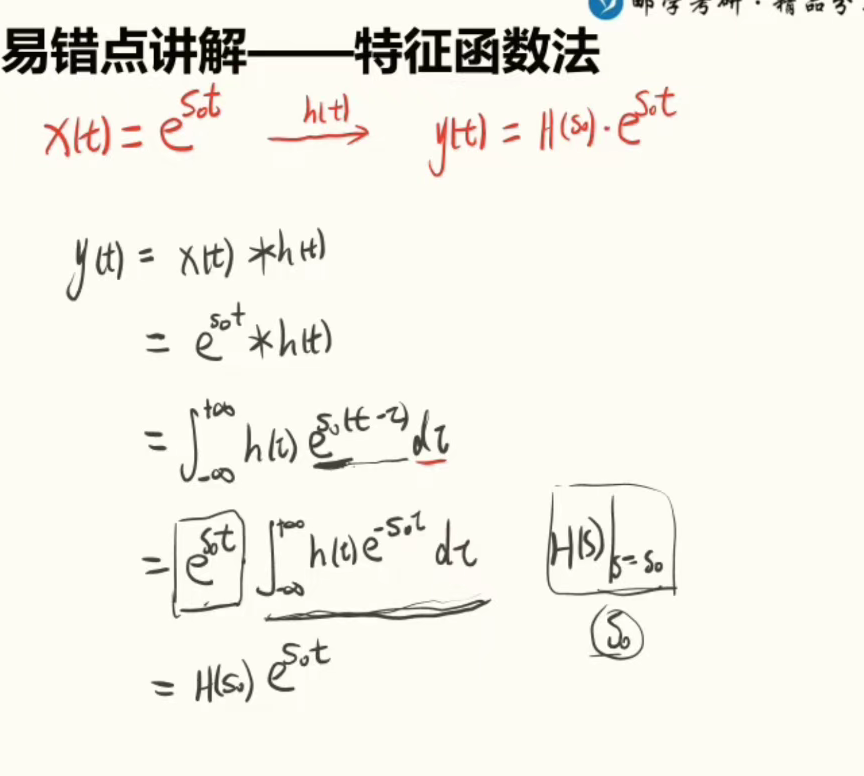 邮学考研·精品分
易错点讲解——特征函数法
x(t) = e^{s₀t} \xrightarrow{h(t)} y(t) = H(s₀)·e^{s₀t}
y(t) = x(t) * h(t)
= e^{s₀t} * h(t)
= ∫_{-∞}^{+∞} h(τ) e^{s₀(t-τ)} dτ
= e^{s₀t} ∫_{-∞}^{+∞} h(τ) e^{-s₀τ} dτ H(s)|_{s=s₀}
s₀
= H(s₀) e^{s₀t}